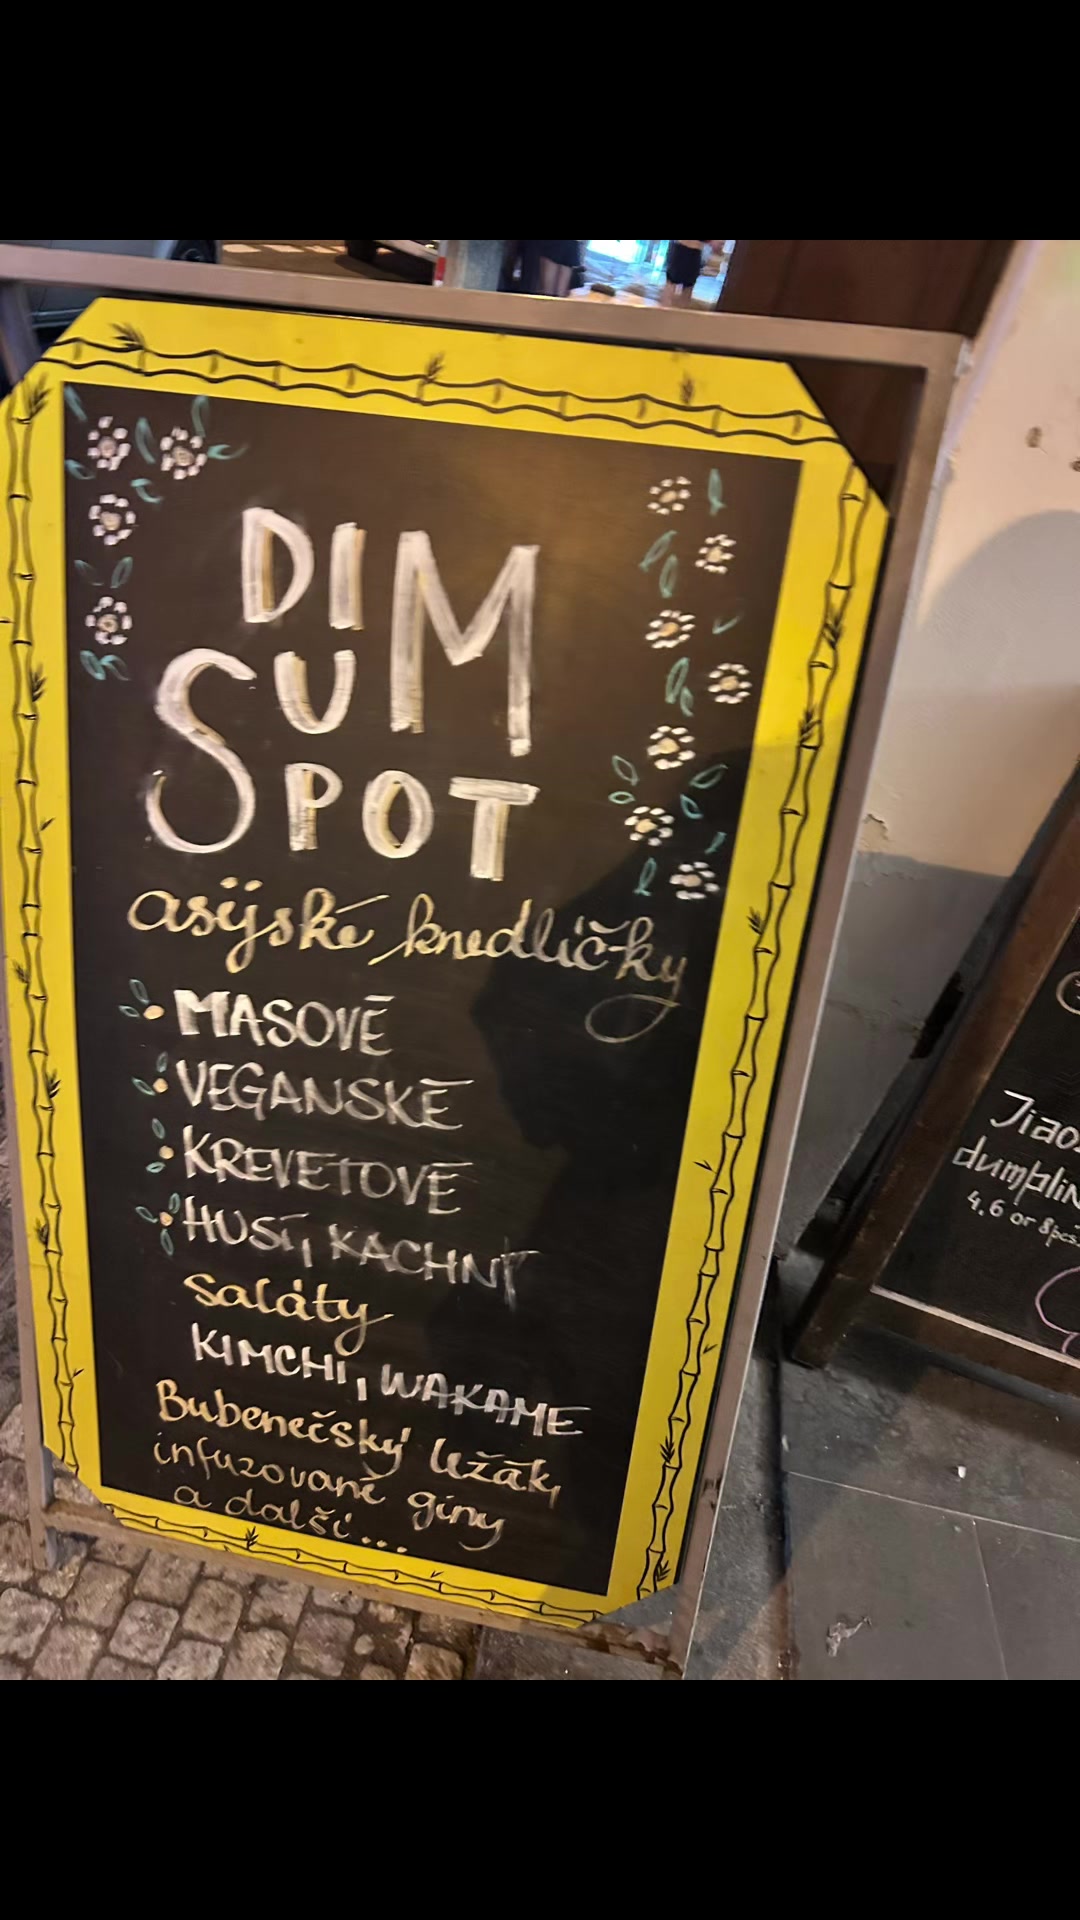 DIM
SUM
SPOT
asijské knedlíčky
MASOVÉ
VEGANSKÉ
KREVETOVÉ
HUSÍ, KACHNÍ
saláty
KIMCHI, WAKAME
Bubenečský ležák,
infuzované giny
a další...
dumplin
4, 6 or 8pcs.